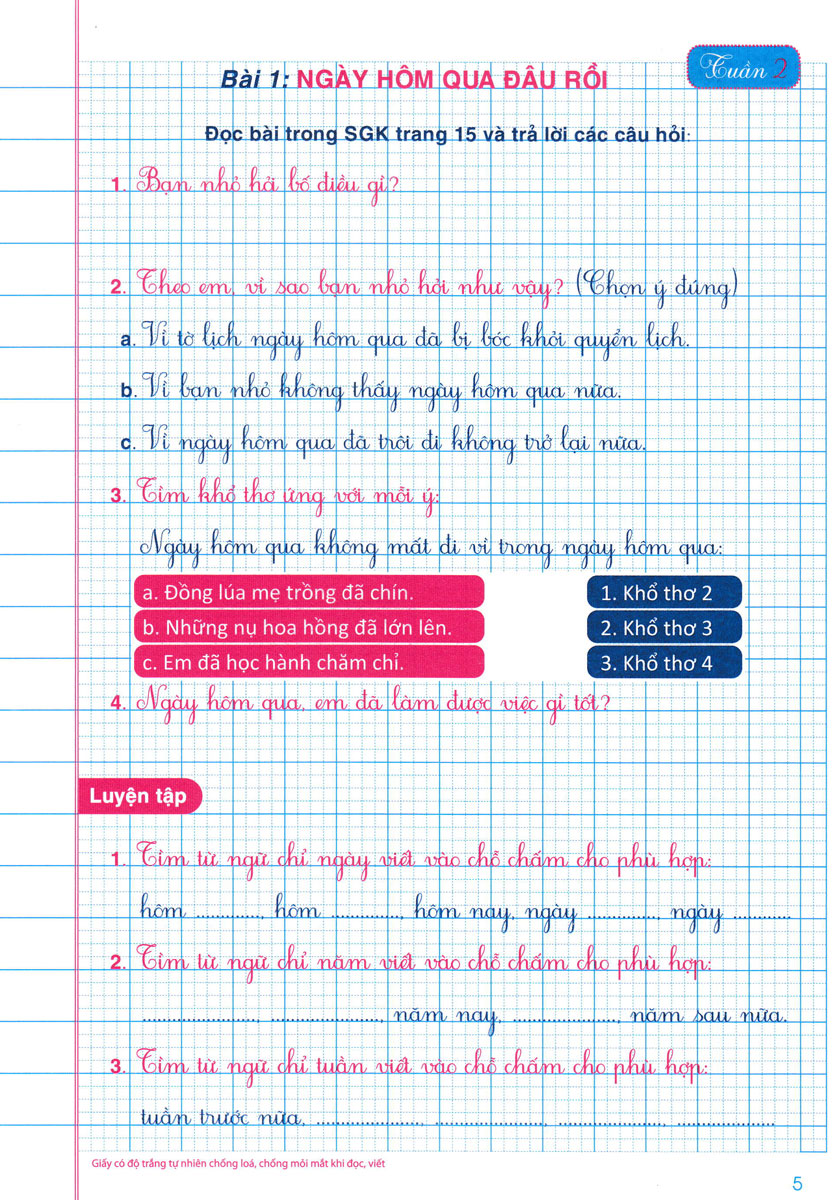 Tuần 2
Bài 1: NGÀY HÔM QUA ĐÂU RỒI
Đọc bài trong SGK trang 15 và trả lời các câu hỏi:
1. Bạn nhỏ hỏi bố điều gì?
2. Theo em, vì sao bạn nhỏ hỏi như vậy? (Chọn ý đúng)
a. Vì tờ lịch ngày hôm qua đã bị bóc khỏi quyển lịch.
b. Vì bạn nhỏ không thấy ngày hôm qua nữa.
c. Vì ngày hôm qua đã trôi đi không trở lại nữa.
3. Tìm khổ thơ ứng với mỗi ý:
Ngày hôm qua không mất đi vì trong ngày hôm qua:
a. Đồng lúa mẹ trồng đã chín. 1. Khổ thơ 2
b. Những nụ hoa hồng đã lớn lên. 2. Khổ thơ 3
c. Em đã học hành chăm chỉ. 3. Khổ thơ 4
4. Ngày hôm qua, em đã làm được việc gì tốt?
Luyện tập
1. Tìm từ ngữ chỉ ngày viết vào chỗ chấm cho phù hợp:
hôm ............, hôm ............., hôm nay, ngày ............., ngày ...........
2. Tìm từ ngữ chỉ năm viết vào chỗ chấm cho phù hợp:
....................., ...................., năm nay, ..................., năm sau nữa.
3. Tìm từ ngữ chỉ tuần viết vào chỗ chấm cho phù hợp:
tuần trước nữa, ..................., ...................., ..................., ..................
Giấy có độ trắng tự nhiên chống loá, chống mỏi mắt khi đọc, viết
5